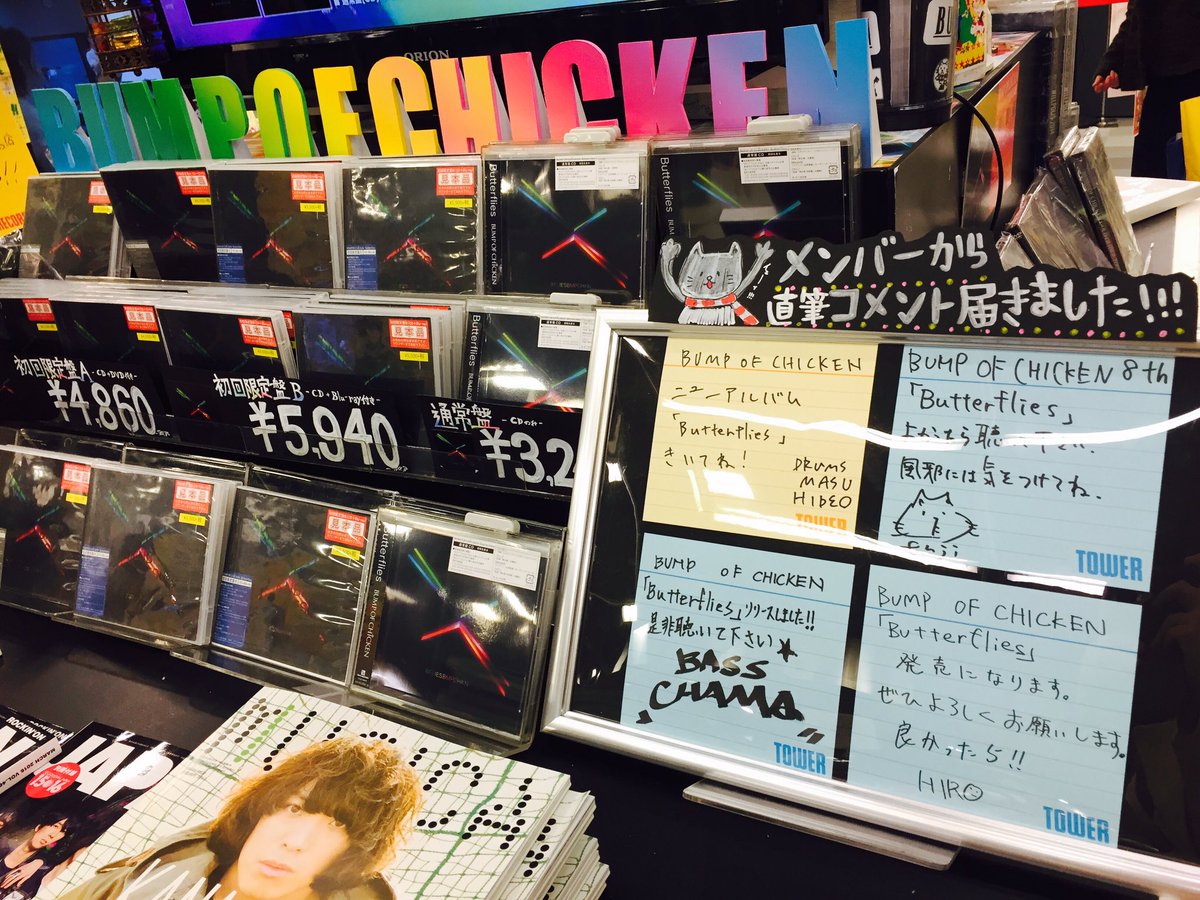 ORION
BUMP OF CHICKEN
見本品
見本品
見本品
Butterflies BUMP OF CHICKEN
Butterflies
メンバーから
直筆コメント届きました!!!
見本品
見本品
見本品
見本品
Butterflies
初回限定盤A -CD+DVD付き-
¥4,860
初回限定盤B -CD+Blu-ray付き-
¥5,940
通常盤 -CDのみ-
¥3,2
BUMP OF CHICKEN
ニューアルバム
「Butterflies」
きいてね!
DRUMS
MASU
HIDEO
TOWER
BUMP OF CHICKEN 8th
「Butterflies」
よかったら聴いて下さい
風邪には気をつけてね.
Fuji
TOWER
BUMP OF CHICKEN
「Butterflies」リリースしました!!
是非聴いて下さい★
BASS
CHAMA
TOWER
BUMP OF CHICKEN
「Butterflies」
発売になります。
ぜひよろしくお願いします。
良かったら!!
HIRO
TOWER
見本品
見本品
見本品
Butterflies BUMP OF CHICKEN
ROCKIN'ON
MARCH 2016
JAP
MUSICA